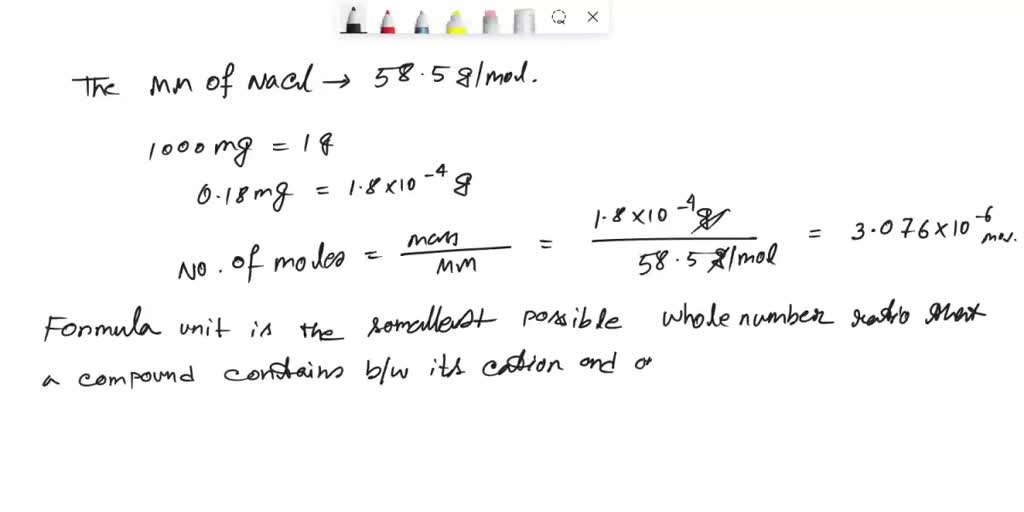 The MM of NaCl → 58.5 g/mol.
1000 mg = 1 g
0.18 mg = 1.8 × 10⁻⁴ g
No. of moles = mass / MM = 1.8 × 10⁻⁴ g / 58.5 g/mol = 3.076 × 10⁻⁶ mol.
Formula unit is the somallest possible whole number ratio that
a compound contains b/w its cation and a